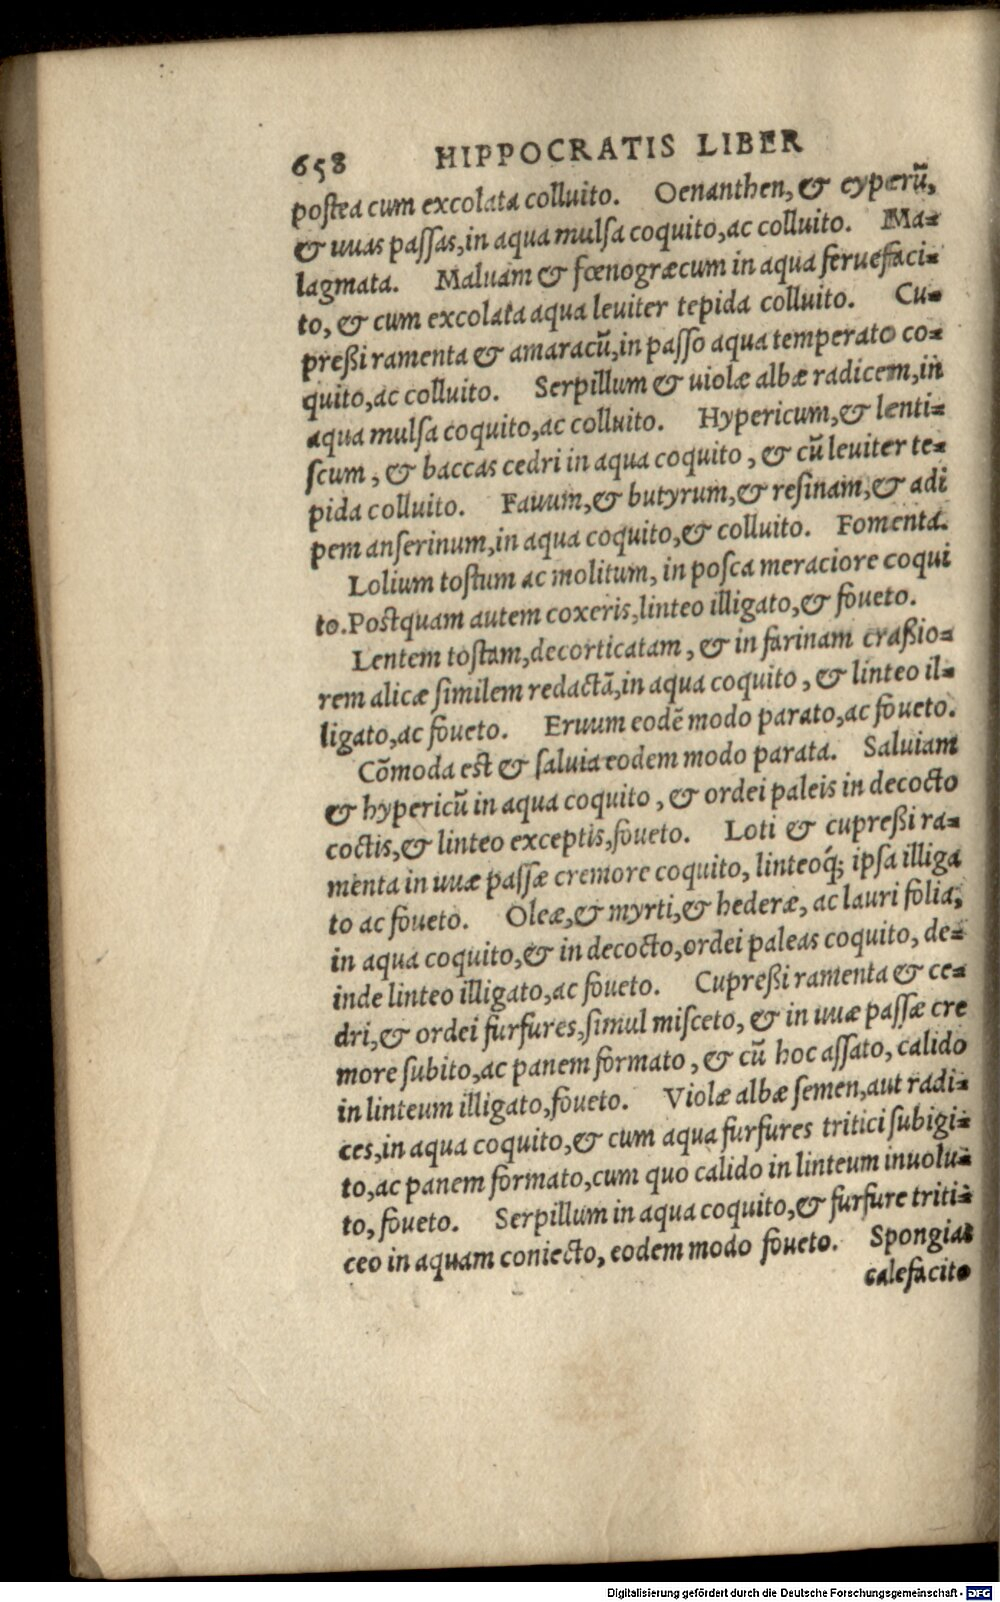 658 HIPPOCRATIS LIBER
postea cum excolata colluito. Oenanthen, & cyperū,
& uuas passas, in aqua mulsa coquito, ac colluito. Ma-
lagmata. Maluam & fœnogræcum in aqua feruefaci-
to, & cum excolata aqua leuiter tepida colluito. Cu-
preßi ramenta & amaracū, in passo aqua temperato co-
quito, ac colluito. Serpillum & uiolæ albæ radicem, in
aqua mulsa coquito, ac colluito. Hypericum, & lenti-
scum, & baccas cedri in aqua coquito, & cū leuiter te-
pida colluito. Fauum, & butyrum, & resinam, & adi
pem anserinum, in aqua coquito, & colluito. Fomenta.
Lolium tostum ac molitum, in posca meraciore coqui
to. Postquam autem coxeris, linteo illigato, & foueto.
Lentem tostam, decorticatam, & in farinam craßio-
rem alicæ similem redactā, in aqua coquito, & linteo il-
ligato, ac foueto. Eruum eodē modo parato, ac foueto.
Cōmoda est & saluia eodem modo parata. Saluiam
& hypericū in aqua coquito, & ordei paleis in decocto
coctis, & linteo exceptis, foueto. Loti & cupreßi ra-
menta in uuæ passæ cremore coquito, linteoq́; ipsa illiga
to ac foueto. Oleæ, & myrti, & hederæ, ac lauri folia,
in aqua coquito, & in decocto, ordei paleas coquito, de-
inde linteo illigato, ac foueto. Cupreßi ramenta & ce-
dri, & ordei furfures, simul misceto, & in uuæ passæ cre
more subito, ac panem formato, & cū hoc assato, calido
in linteum illigato, foueto. Violæ albæ semen, aut radi-
ces, in aqua coquito, & cum aqua furfures tritici subigi-
to, ac panem formato, cum quo calido in linteum inuolu-
to, foueto. Serpillum in aqua coquito, & furfure triti-
ceo in aquam coniecto, eodem modo foueto. Spongias
calefacito
Digitalisierung gefördert durch die Deutsche Forschungsgemeinschaft - DFG